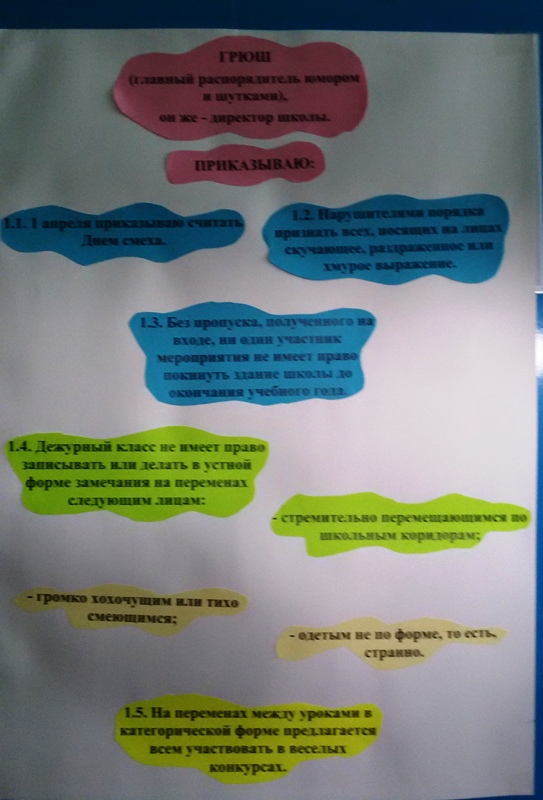 ГРЮШ
(главный распорядитель юмором
и шутками),
он же - директор школы.
ПРИКАЗЫВАЮ:
1.1. 1 апреля приказываю считать
Днем смеха.
1.2. Нарушителями порядка
признать всех, носящих на лицах
скучающее, раздраженное или
хмурое выражение.
1.3. Без пропуска, полученного на
входе, ни один участник
мероприятия не имеет право
покинуть здание школы до
окончания учебного года.
1.4. Дежурный класс не имеет право
записывать или делать в устной
форме замечания на переменах
следующим лицам:
- стремительно перемещающимся по
школьным коридорам;
- громко хохочущим или тихо
смеющимся;
- одетым не по форме, то есть,
странно.
1.5. На переменах между уроками в
категорической форме предлагается
всем участвовать в веселых
конкурсах.